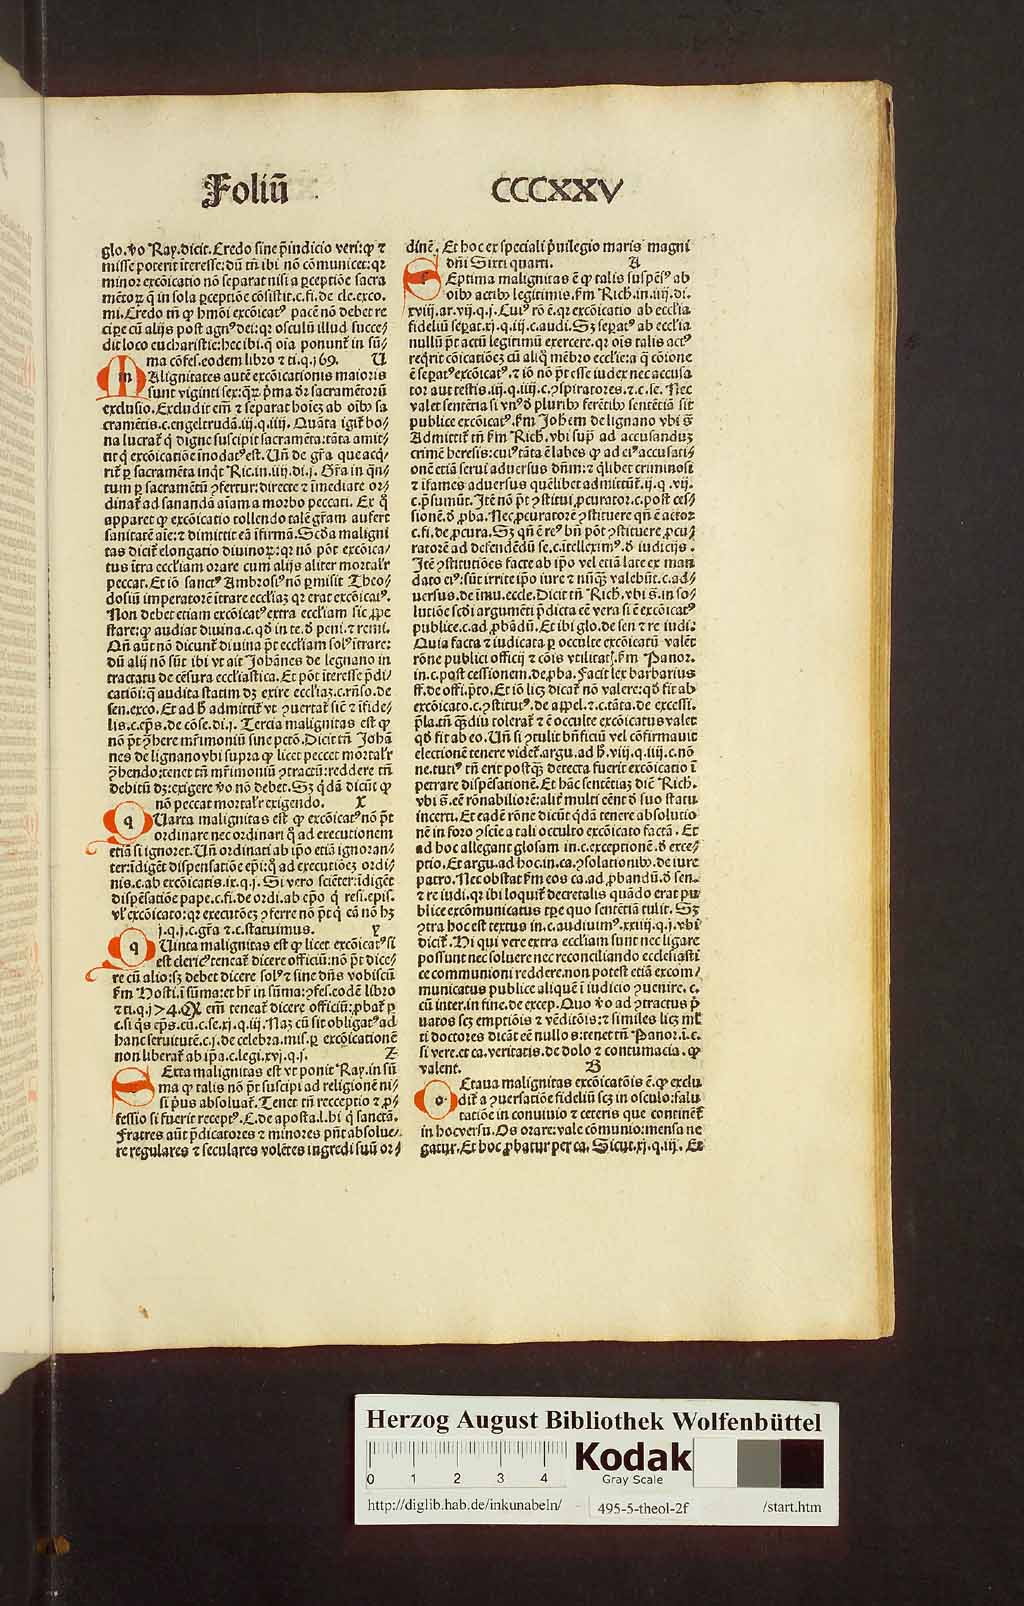 Foliū CCCXXV
glo. v̄o Ray. dicit. Credo sine p̄iudicio veri: ꝙ ⁊
misse poterit īteresse: dū tn̄ ibi nō cōmunicet: qꝛ
minor excōicatio nō separat nisi a ꝑceptiōe sacra
mētoꝝ q̄ in sola ꝑceptiōe cōsistit. c. fi. de cle. exco.
mi. Credo tn̄ ꝙ hmōi excōicatꝰ pacē nō debet re
cipe cū alijs post agnꝰ dei: qꝛ osculū illud succe⸗
dit loco eucharistie: hec ibi. q̄ oīa ponunt᷑ in sū⸗
ma cōfes. eodem libro ⁊ ti. q. 169. U
m Alignitates autē excōicationis maioris
sunt viginti sex: q̄ꝝ p̄ma d̄r sacramētorū
exclusio. Excludit em̄ ⁊ separat hoīez ab oībꝰ sa
cramētis. c. engeltrudā. iij. q. iiij. Quāta igit᷑ bo⸗
na lucrat᷑ q̄ digne suscipit sacramēta: tāta amit⸗
tit q̄ excōicatiōe īnodatꝰ est. Un̄ de gr̄a que acq̄⸗
rit᷑ ꝑ sacramēta inq̄t Ric. in. iiij. di. j. Gr̄a in q̄n⸗
tum ꝑ sacramētū ꝯfertur: directe ⁊ īmediate or⸗
dinat᷑ ad sanandā aīam a morbo peccati. Ex q̄
apparet ꝙ excōicatio tollendo talē gr̄am aufert
sanitatē aīe: ⁊ dimittit eā īfirmā. Scd̄a maligni
tas dicit᷑ elongatio diuinoꝝ: qꝛ nō pōt excōica⸗
tus ītra eccl̄iam orare cum alijs aliter mortal᷑r
peccat. Et iō sanctꝰ Ambrosiꝰ nō ꝑmisit Theo⸗
dosiū imperatorē ītrare eccl̄iaꝫ qꝛ erat excōicatꝰ.
Non debet etiam excōicatꝰ extra eccl̄iam sic ꝓpe
stare: ꝙ audiat diuina. c. qd̄ in te. d̄ peni. ⁊ remi.
Qn̄ aūt nō dicunt᷑ diuina p̄t eccl̄iam solꝰ ītrare:
dū alij nō sūt ibi vt ait Johānes de legnano in
tractatu de cēsura eccl̄iastica. Et pōt īteresse p̄di⸗
catiōi: qͣ audita statim dꝫ exire eccl̄iaꝫ. c. rn̄so. de
sen. exco. Et ad h̄ admittit᷑ vt ꝯuertat᷑ siē ⁊ īfide⸗
lis. c. ep̄s. de cōse. di. j. Tercia malignitas est ꝙ
nō p̄t ꝯhere mr̄imoniū sine pctō. Dicit tn̄ Johā
nes de lignano vbi supra ꝙ licet peccet mortal᷑r
ꝯhendo: tenet tn̄ mr̄imoniū ꝯtractū: reddere tn̄
debitū dꝫ: exigere v̄o nō debet. Sꝫ q̄dā dicūt ꝙ
nō peccat mortal᷑r exigendo. x
q Uarta malignitas est ꝙ excōicatꝰ nō p̄t
ordinare nec ordinari q̄ ad executionem
etiā si ignoret. Un̄ ordinati ab ip̄o etiā ignoran⸗
ter: īdigēt dispensatiōe ep̄i: q̄ ad executiōeꝫ ordi⸗
nis. c. ab excōicatis. ix. q. j. Si vero sciēter: īdigēt
dispēsatiōe pape. c. fi. de ordi. ab ep̄o q̄ resi. epis.
vl᷑ excōicato: qꝛ executōeꝫ ꝯferre nō p̄t q̄ eā nō hꝫ
j. q. j. c. gr̄a ⁊ c. statuimus. y
q Uinta malignitas est ꝙ licet excōicatꝰ si
est clericꝰ teneat᷑ dicere officiū: nō p̄t dice⸗
re cū alio: sꝫ debet dicere solꝰ ⁊ sine dn̄s vobiscū
ẜm Hosti. ī sūma: et hr̄ in sūma: ꝯfes. eodē libro
⁊ ti. q. 174. Qꝛ em̄ teneat᷑ dicere officiū: ꝓbat᷑ ꝑ
c. si q̄s ep̄s. cū. c. se. xj. q. iij. Naꝫ cū sit obligatꝰ ad
hanc seruitutē. c. j. de celebra. mis. ꝑ excōicationē
non liberat᷑ ab ip̄a. c. legi. xvj. q. j. Z
S Exta malignitas est vt ponit Ray. in sū
ma ꝙ talis nō p̄t suscipi ad religionē ni⸗
si p̄us absoluat᷑. Tenet tn̄ recceptio ⁊ ꝓ⸗
fessio si fuerit receptꝰ. C. de aposta. l. hi q̄ sanctā.
Fratres aūt p̄dicatores ⁊ minores pn̄t absolue⸗
re regulares ⁊ seculares volētes ingredi suū or⸗
dinē. Et hoc ex speciali p̄uilegio maris magni
dn̄i Sixti quarti. A
S Eptima malignitas ē ꝙ talis suspēsꝰ ab
oībꝰ actibꝰ legitimis. ẜm Rich. in. iiij. di.
xviij. ar. vij. q. j. Cuiꝰ rō ē. qꝛ excōicatio ab eccl̄ia
fideliū seꝑat. xj. q. iij. c. audi. Sꝫ seꝑatꝰ ab eccl̄ia
nullū p̄t actū legitimū exercere. qꝛ oīs talis actꝰ
reqrit cōicatiōeꝫ cū aliq̄ mēbro eccl̄ie: a q̄ cōione
ē seꝑatꝰ excōicatꝰ. ⁊ iō nō p̄t esse iudex nec accusa
tor aut testis. iij. q. iiij. c. ꝯspiratores. ⁊. c. se. Nec
valet sentētia si vnꝰ d̄ pluribꝰ ferētibꝰ sentētiā sit
publice excōicatꝰ. ẜm Johem de lignano vbi s̄
Admittit᷑ tn̄ ẜm Rich. vbi supͣ ad accusanduꝫ
crimē heresis: cuiꝰ tāta ē labes ꝙ ad eiꝰ accusati⸗
onē etiā serui aduersus dn̄m: ⁊ q̄libet criminosi
⁊ īfames aduersus quēlibet admittūt᷑. ij. q. vij.
c. p̄sumūt. Itē nō p̄t ꝯstitui ꝓcurator. c. post ces⸗
sionē. d̄ ꝓba. Nec ꝓcuratorē ꝯstituere qn̄ ē actor
c. fi. de ꝓcura. Sꝫ qn̄ ē reꝰ bn̄ pōt ꝯstituere ꝓcu⸗
ratorē ad defendēdū se. c. ītelleximꝰ. d̄ iudicijs.
Itē ꝯstitutiōes facte ab ip̄o vel etiā late ex man
dato eiꝰ: sūt irrite ip̄o iure ⁊ nūq̄ꝫ valebūt. c. ad⸗
uersus. de īmu. eccle. Dicit tn̄ Rich. vbi s̄. in so⸗
lutiōe scd̄i argumēti p̄dicta eē vera si ē excōicatꝰ
publice. c. ad ꝓbādū. Et ibi glo. de sen ⁊ re iudi.
Quia facta ⁊ iudicata ꝑ occulte excōicatū valēt
rōne publici officij ⁊ cōis vtilitatꝭ. ẜm Panor.
in. c. post cessionem. de ꝓba. Facit lex barbarius
ff. de offi. p̄to. Et iō licꝫ dicat᷑ nō valere: qd̄ fit ab
excōicato. c. ꝯstitutꝰ. de appel. ⁊. c. tāta. de excessi.
p̄la. tn̄ q̄ꝫdiu tolerat᷑ ⁊ ē occulte excōicatus valet
qd̄ fit ab eo. Un̄ si ꝯtulit bn̄ficiū vel cōfirmauit
electionē tenere videt᷑. argu. ad h̄. viij. q. iiij. c. nō
ne. tutiꝰ tn̄ erit postq̄ꝫ detecta fuerit excōicatio ī
petrare dispēsationē. Et hāc sentētiaꝫ dicꝫ Rich.
vbi s̄. eē rōnabiliorē: alit᷑ multi eēnt d̄ suo statu
incerti. Et eadē rōne dicūt q̄dā tenere absolutio
nē in foro ꝯscīe a tali occulto excōicato factā. Et
ad hoc allegant glosam in. c. exceptionē. d̄ exce⸗
ptio. Et argu. ad hoc. in. ca. ꝯsolationibꝰ. de iure
patro. Nec obstat ẜm eos ca. ad ꝓbandū. d̄ sen.
⁊ re iudi. qꝛ ibi loquit᷑ decretalis quādo erat pu
blice excōmunicatus tꝑe quo sentētiā tulit. Sꝫ
ꝯtra hoc est textus in. c. audiuimꝰ. xxiiij. q. j. vbi
dicit᷑. Hi qui vere extra eccl̄iam sunt nec ligare
possunt nec soluere nec reconciliando ecclesiasti
ce communioni reddere. non potest etiā excom⸗
municatus publice aliquē ī iudicio ꝯuenire. c.
cū inter. in fine. de excep. Quo v̄o ad ꝯtractus p̄
uatos scꝫ emptiōis ⁊ vēditōis: ⁊ similes licꝫ ml᷑
ti doctores dicāt eē nullos: tenet tn̄ Panor. ī. c.
si vere. et ca. veritatis. de dolo ⁊ contumacia. ꝙ
valent. B
o Ctaua malignitas excōicatōis ē. ꝙ exclu
dit᷑ a ꝯuersatiōe fideliū scꝫ in osculo: salu
tatiōe in conuiuio ⁊ ceteris que continēt᷑
in hoc versu. Os orare: vale cōmunio: mensa ne
gatur. Et hoc ꝓbatur per ca. Sicut. xj. q. iij. Et
Herzog August Bibliothek Wolfenbüttel
0 1 2 3 4
Kodak
Gray Scale
http://diglib.hab.de/inkunabeln/ 495-5-theol-2f /start.htm